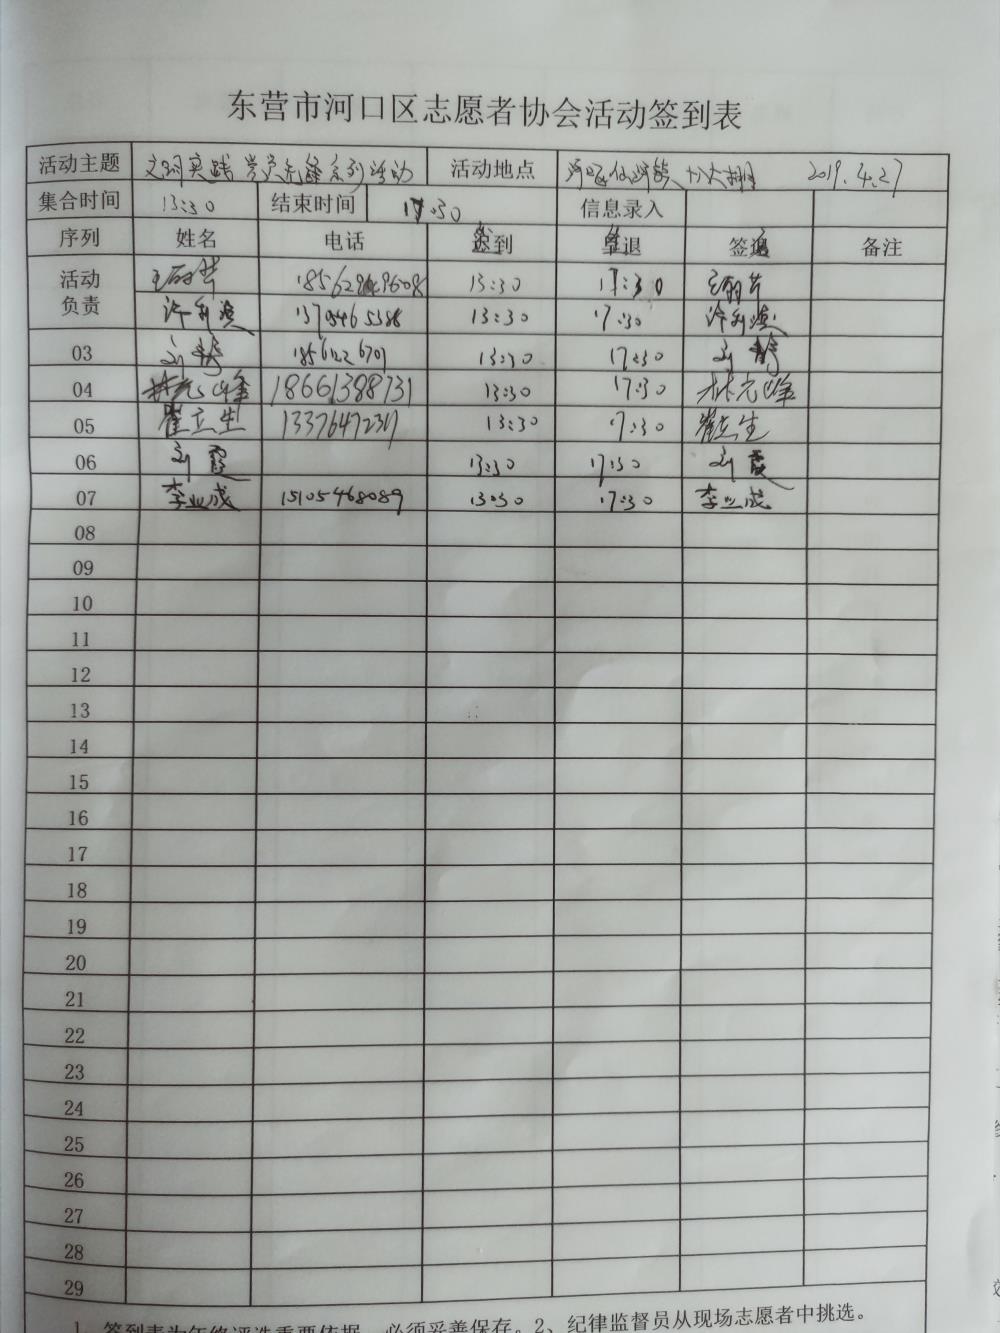 东营市河口区志愿者协会活动签到表
活动主题 文明实践 党员先锋系列活动 活动地点 2019.4.27
集合时间 13:30 结束时间 17:30 信息录入
序列 姓名 电话 签到 签退 签退 备注
活动负责 13:30 17:30
许利 13:30 17:30 许利
03 刘静 13:30 17:30 刘静
04 林元峰 18661388731 13:30 17:30 林元峰
05 崔立生 13:30 17:30 崔立生
06 刘霞 13:30 17:30 刘霞
07 李业成 15105468089 13:30 17:30 李业成
08
09
10
11
12
13
14
15
16
17
18
19
20
21
22
23
24
25
26
27
28
29
1、签到表为年终评选重要依据，必须妥善保存。2、纪律监督员从现场志愿者中挑选。